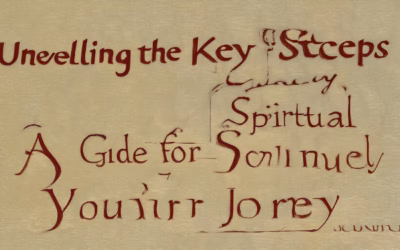 Unvelling the Key Stceps
Spirttual
A Gide for Somnuely
Youırr Jorey